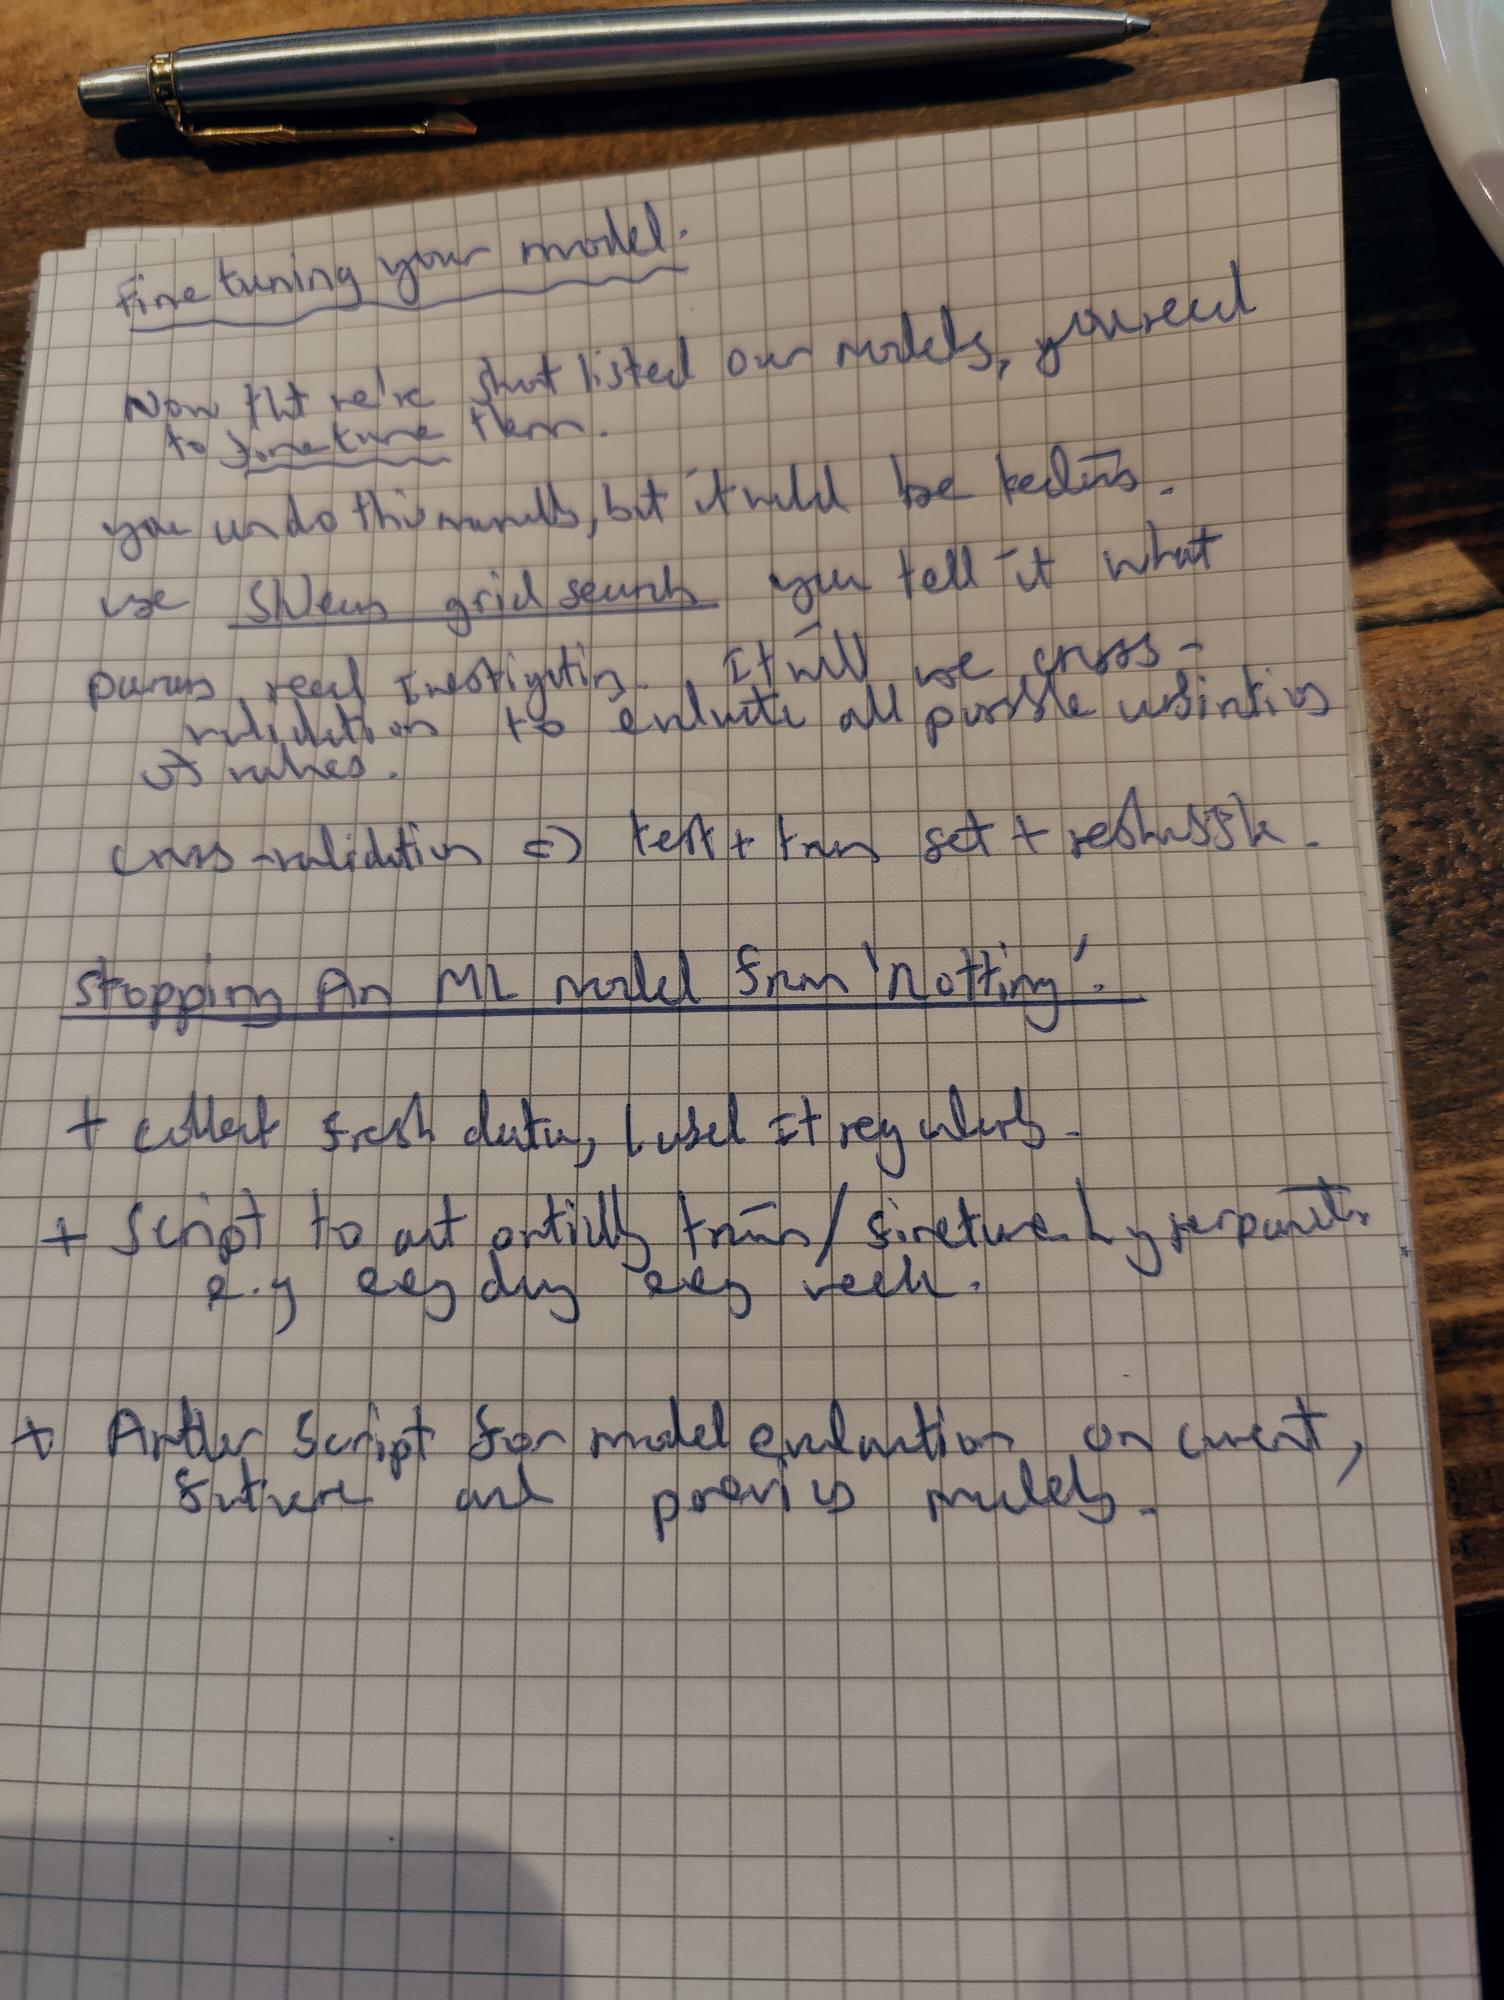 Fine tuning your model.
Now tht we're short listed our models, you need
to finetune them.
you can do this manually, but it would be tedious.
use SKlearn grid search you tell it what
params need investigating. It will use cross-
validation to evaluate all possible combinations
of values.
cross-validation => test + train set + reshuffle.
Stopping An ML model from 'rotting'.
+ collect fresh data, label it regularly.
+ Script to automatically train/finetune hyperparameters
e.g every day every week.
+ Another script for model evaluation on current,
future and previous models.